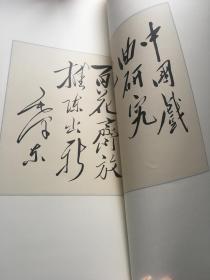 中國戲
曲研究
百花齊放
推陈出新
毛泽东